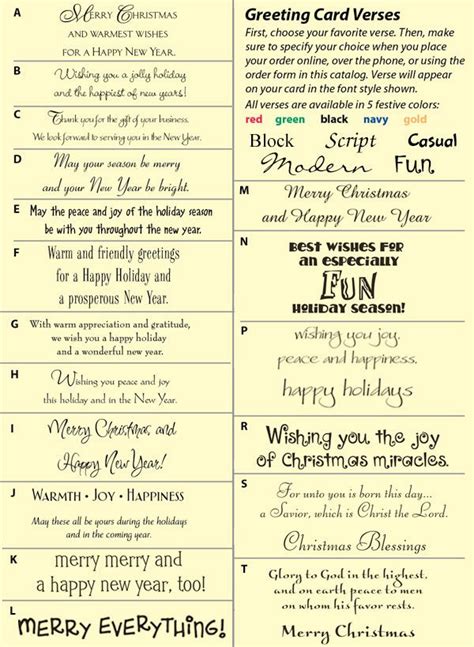 A
Merry Christmas
and warmest wishes
for a Happy New Year.
B
Wishing you a jolly holiday
and the happiest of new years!
C
Thank you for the gift of your business.
We look forward to serving you in the New Year.
D
May your season be merry
and your New Year be bright.
E
May the peace and joy of the holiday season
be with you throughout the new year.
F
Warm and friendly greetings
for a Happy Holiday and
a prosperous New Year.
G
With warm appreciation and gratitude,
we wish you a happy holiday
and a wonderful new year.
H
Wishing you peace and joy
this holiday and in the New Year.
I
Merry Christmas, and
Happy New Year!
J
Warmth • Joy • Happiness
May these all be yours during the holidays
and in the coming year.
K
merry merry and
a happy new year, too!
L
MERRY EVERYTHING!
Greeting Card Verses
First, choose your favorite verse. Then, make
sure to specify your choice when you place
your order online, over the phone, or using the
order form in this catalog. Verse will appear
on your card in the font style shown.
All verses are available in 5 festive colors:
red green black navy gold
Block Script Casual
Modern Fun
M
Merry Christmas
and Happy New Year
N
Best Wishes for
an especially
Fun
holiday season!
P
wishing you joy,
peace and happiness,
happy holidays
R
Wishing you the joy
of Christmas miracles.
S
For unto you is born this day...
a Savior, which is Christ the Lord.
Christmas Blessings
T
Glory to God in the highest,
and on earth peace to men
on whom his favor rests.
Merry Christmas